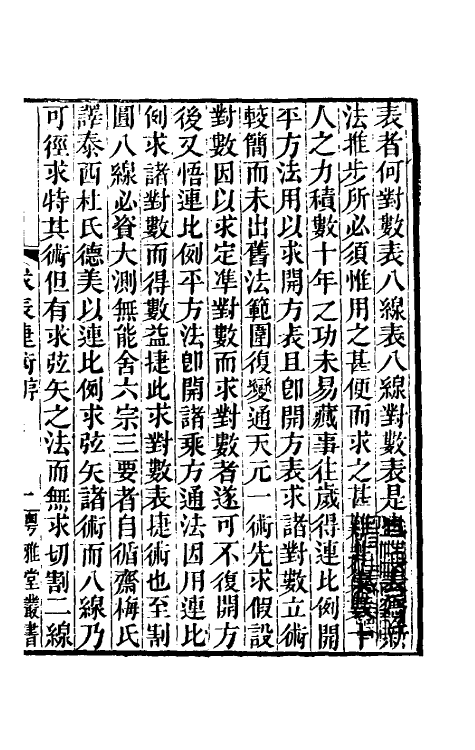 表者何對數表八線表八線對數表是
法推步所必須惟用之甚便而求之甚難
人之力積數十年之功未易蕆事往歲得連比例開
平方法用以求開方表且卽開方表求諸對數立術
較簡而未出舊法範圍復變通天元一術先求假設
對數因以求定準對數而求對數者遂可不復開方
後又悟連比例平方法卽開諸乘方通法因用連比
例求諸對數而得數益捷此求對數表捷術也至割
圓八線必資大測無能舍六宗三要者自循齋梅氏
譯泰西杜氏德美以連比例求弦矢諸術而八線乃
可徑求特其術但有求弦矢之法而無求切割二線
求表捷術序 一 粤雅堂叢書